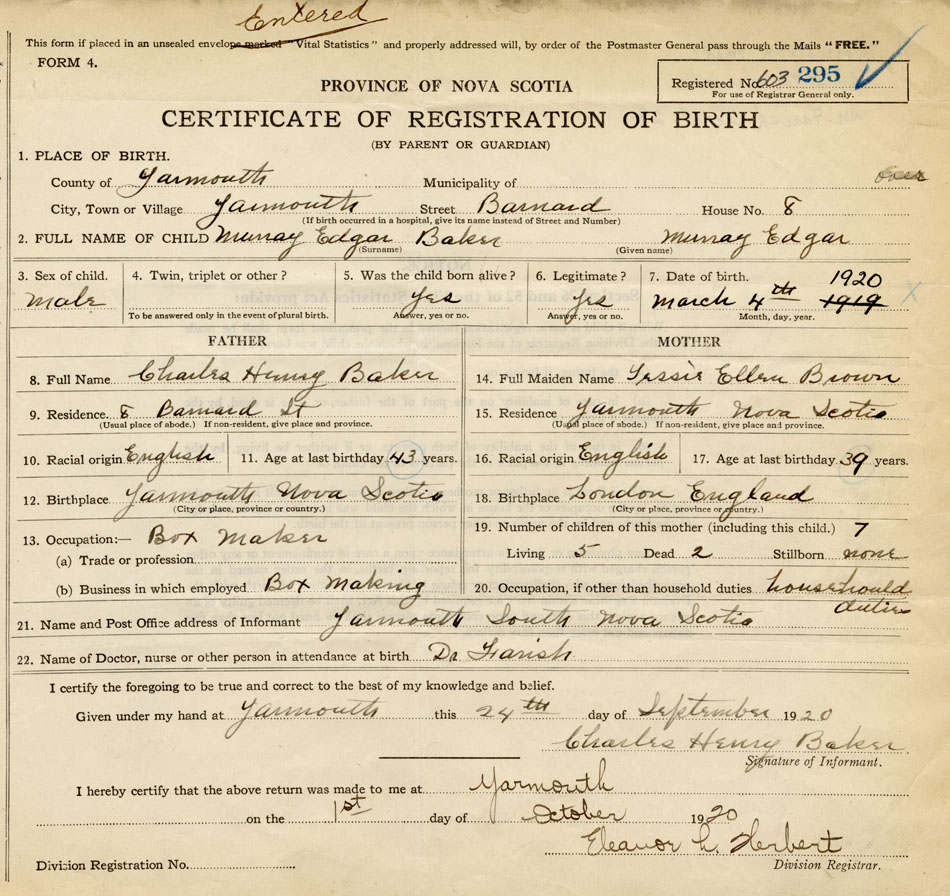 Entered
This form if placed in an unsealed envelope marked "Vital Statistics" and properly addressed will, by order of the Postmaster General pass through the Mails "FREE."
FORM 4.
Registered No. 603 295
For use of Registrar General only.
PROVINCE OF NOVA SCOTIA
CERTIFICATE OF REGISTRATION OF BIRTH
(BY PARENT OR GUARDIAN)
1. PLACE OF BIRTH.
County of Yarmouth Municipality of over
City, Town or Village Yarmouth Street Barnard House No. 8
(If birth occurred in a hospital, give its name instead of Street and Number)
2. FULL NAME OF CHILD Murray Edgar Baker Murray Edgar
(Surname) (Given name)
3. Sex of child. 4. Twin, triplet or other? 5. Was the child born alive? 6. Legitimate? 7. Date of birth. 1920
Male Yes Yes March 4th 1919 x
To be answered only in the event of plural birth. Answer, yes or no. Answer, yes or no. Month, day, year.
FATHER MOTHER
8. Full Name Charles Henry Baker 14. Full Maiden Name Jessie Ellen Brown
9. Residence. 8 Barnard St 15. Residence Yarmouth Nova Scotia
(Usual place of abode.) If non-resident, give place and province. (Usual place of abode.) If non-resident, give place and province.
10. Racial origin English 11. Age at last birthday 43 years. 16. Racial origin English 17. Age at last birthday 39 years.
12. Birthplace Yarmouth Nova Scotia 18. Birthplace London England
(City or place, province or country.) (City or place, province or country.)
13. Occupation:— Box Maker 19. Number of children of this mother (including this child.) 7
(a) Trade or profession Living 5 Dead 2 Stillborn none
(b) Business in which employed Box Making 20. Occupation, if other than household duties househould duties
21. Name and Post Office address of Informant Yarmouth South Nova Scotia
22. Name of Doctor, nurse or other person in attendance at birth Dr Farish
I certify the foregoing to be true and correct to the best of my knowledge and belief.
Given under my hand at Yarmouth this 24th day of September 1920
Charles Henry Baker
Signature of Informant.
I hereby certify that the above return was made to me at Yarmouth
on the 1st day of October 1920
Eleanor L. Herbert
Division Registration No. Division Registrar.